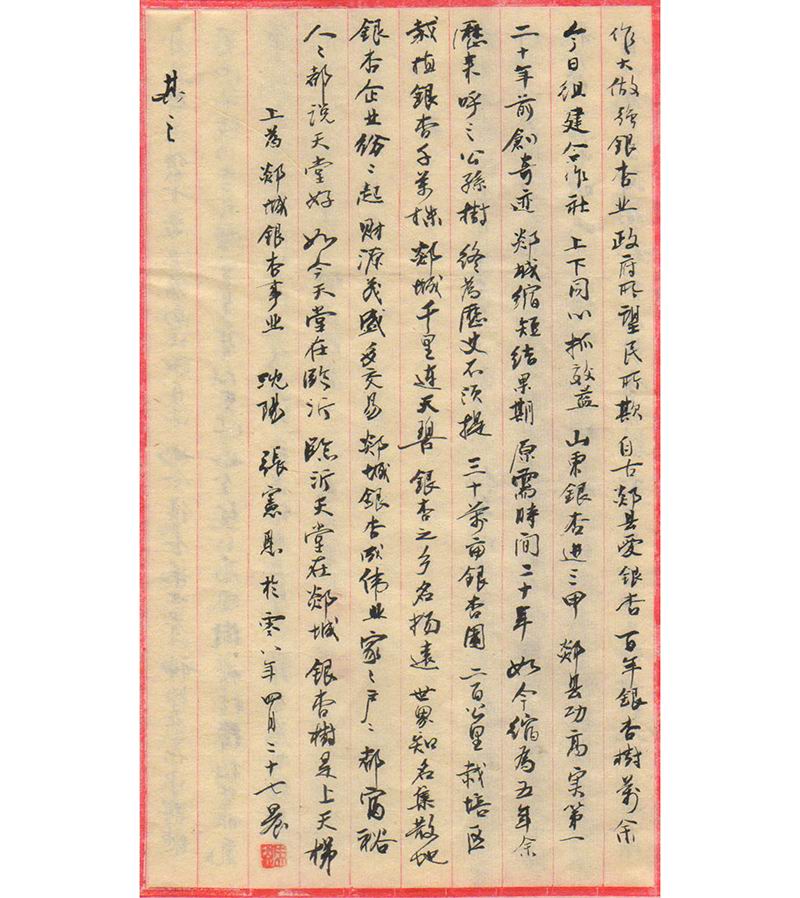 作大做强銀杏业 政府所望民所欺 自古郯县爱銀杏 百年銀杏樹万余
今日组建合作社 上下同心抓效益 山东銀杏进三甲 郯县功高实第一
二十年前創奇迹 郯城缩短结果期 原需時间二十年 如今缩為五年余
歷来呼之公孫樹 终為歷史不须提 三十萬亩銀杏園 二百公里栽培区
栽植銀杏千萬株 郯城千里連天碧 銀杏之乡名揚遠 世界知名集散地
銀杏企业纷〻起 财源茂盛交易 郯城銀杏成伟业 家〻户〻都富裕
人〻都说天堂好 如今天堂在臨沂 臨沂天堂在郯城 銀杏樹是上天梯
上為郯城銀杏事业 沈阳 張憲 於零八年四月二十七晨
其之